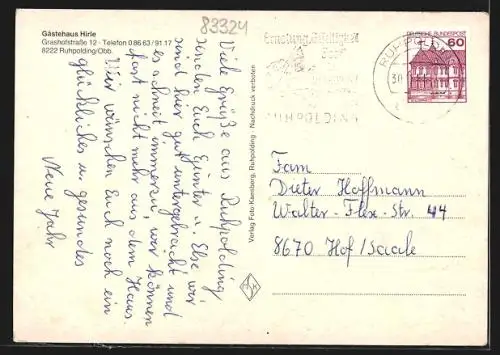 83324
Gästehaus Hirle
Grashofstraße 12 · Telefon 0 86 63 / 91 17
8222 Ruhpolding/Obb.
Viele Grüße aus Ruhpolding
senden Euch Günter u. Else wir
sind hier gut untergebracht und
es schneit immerzu, wir können
fast nicht mehr aus dem Haus.
Wir wünschen Euch noch ein
glückliches u. gesundes
Neue Jahr
Verlag Foto Kamsberg, Ruhpolding · Nachdruck verboten
RUHPOLDING
DEUTSCHE BUNDESPOST
60
RUHPOLDING
30
Fam
Dieter Hoffmann
Walter-Flex-Str. 44
8670 Hof/Saale